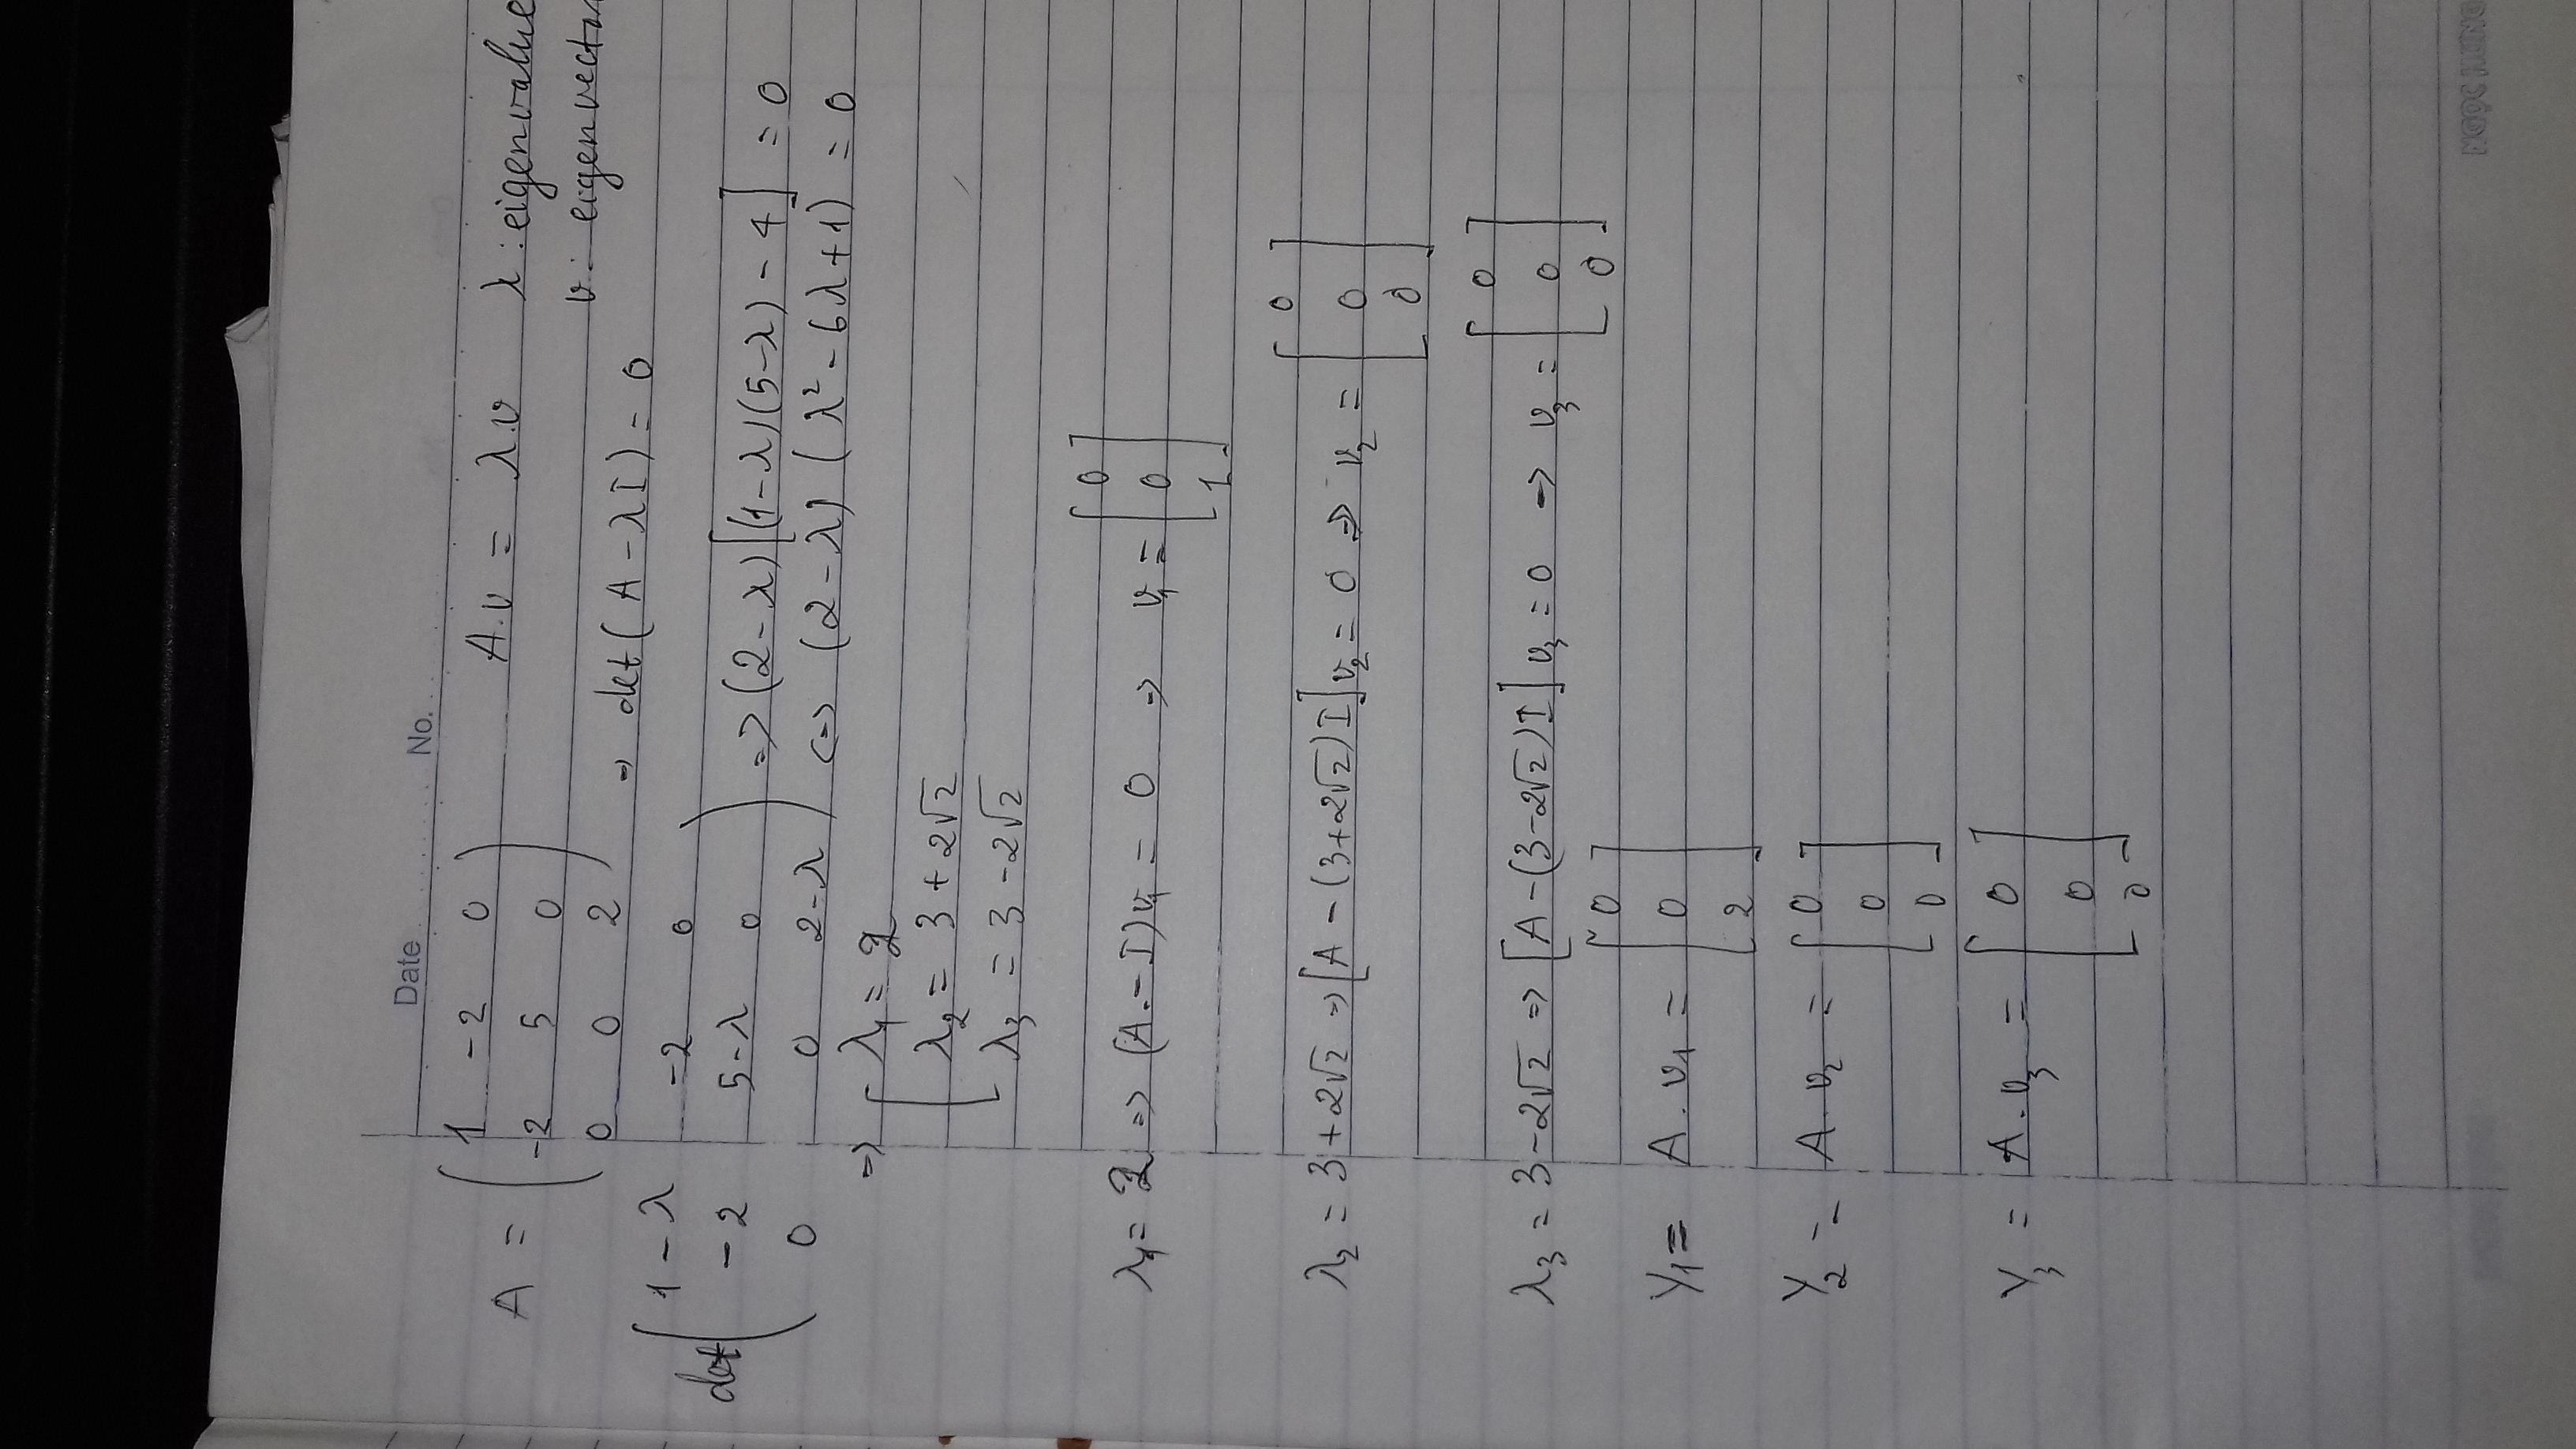 Date No.
A = ( 1 -2 0 A.v = λ.v λ : eigenvalue
-2 5 0 v : eigenvector
0 0 2 ) => det( A - λI) = 0
det( 1 - λ -2 0
-2 5-λ 0 => (2-λ)[(1-λ)(5-λ) - 4] = 0
0 0 2-λ ) <=> (2-λ) (λ² - 6λ + 1) = 0
=> [ λ₁ = 2
λ₂ = 3 + 2√2
λ₃ = 3 - 2√2
λ₁ = 2 => (A.- I)v₁ = 0 => v₁ = [ 0
0
1 ]
λ₂ = 3 + 2√2 => [A - (3+2√2)I]v₂ = 0 => v₂ = [ 0
0
0 ]
λ₃ = 3 - 2√2 => [A - (3-2√2)I] v₃ = 0 => v₃ = [ 0
0
0 ]
Y₁ = A . v₁ = [ 0
0
2 ]
Y₂ = A . v₂ = [ 0
0
0 ]
Y₃ = A . v₃ = [ 0
0
0 ]
NGỌC HƯNG